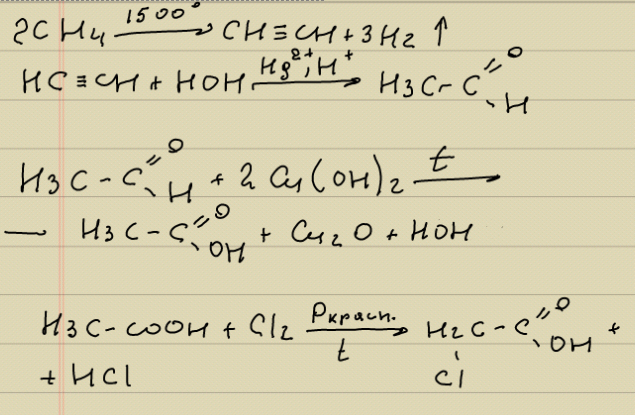 2CH₄ —1500°→ CH≡CH + 3H₂ ↑
HC≡CH + HOH —Hg²⁺, H⁺→ H₃C-C(=O)-H
H₃C-C(=O)-H + 2 Cu(OH)₂ —t→
→ H₃C-C(=O)-OH + Cu₂O + HOH
H₃C-COOH + Cl₂ —Pкрасн., t→ H₂C(Cl)-C(=O)-OH +
+ HCl